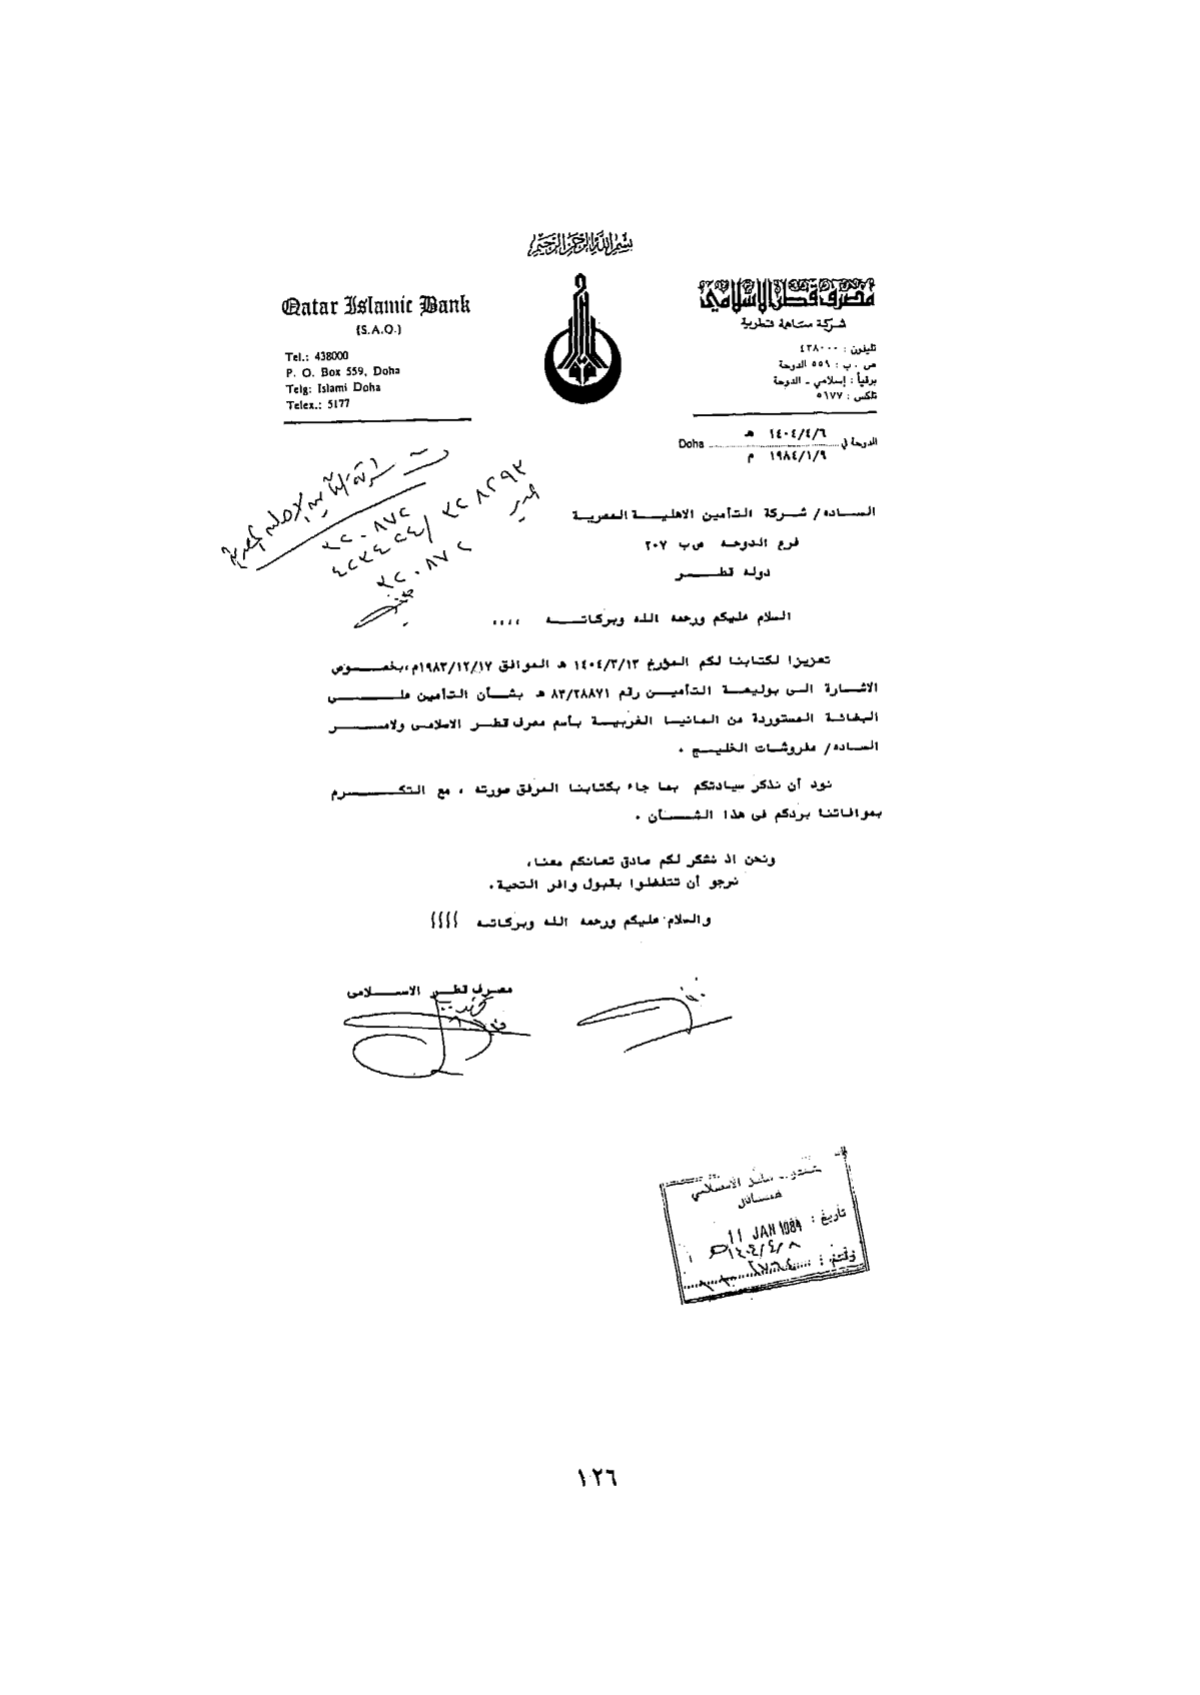 بسم الله الرحمن الرحيم
Qatar Islamic Bank
(S.A.Q.)
Tel.: 438000
P. O. Box 559, Doha
Telg: Islami Doha
Telex.: 5177
مصرف قطر الإسلامي
شركة مساهمة قطرية
تليفون : ٤٣٨٠٠٠
ص . ب : ٥٥٩ الدوحة
برقياً : إسلامي - الدوحة
تلكس : ٥١٧٧
الدوحة في ١٤٠٤/٤/٦ هـ Doha
١٩٨٤/١/٩ م
ت شركة التأمين الأهلية المصرية
٣٢٠٨٧٢
٤٢٣٤٢٤/ ٣٢٨٢٩٣
٣٢٠٨٧٢
الساده/ شركة التأمين الاهليــة المصرية
فرع الدوحه ص ب ٢٠٧
دوله قطــر
السلام عليكم ورحمه الله وبركاتــه ،،،،
تعزيزا لكتابنا لكم المؤرخ ١٤٠٤/٣/١٣ هـ الموافق ١٩٨٣/١٢/١٧م،بخصـوص
الاشـارة الـى بوليصة التأميــن رقم ٨٣/٢٨٨٧١ هـ بشـأن التأمين علــى
البضائة المستوردة من المانيـا الغربيــة بـأسم مصرف قطـر الاسلامى ولامــر
الساده/ مفروشـات الخليــج .
نود أن نذكر سيادتكم بما جاء بكتابنا المرفق صورته ، مع التكــرم
بموافاتنا بردكم فى هذا الشــأن .
ونحن اذ نشكر لكم صادق تعانكم معنا،
نرجو أن تتفضلوا بقبول وافر التحية.
والسلام عليكم ورحمه الله وبركاته
مصـرف قطــر الاســلامى
الاسلامي
تاريخ : 11 JAN 1984
١٤٠٤/٤/٨ هـ
١٢٦